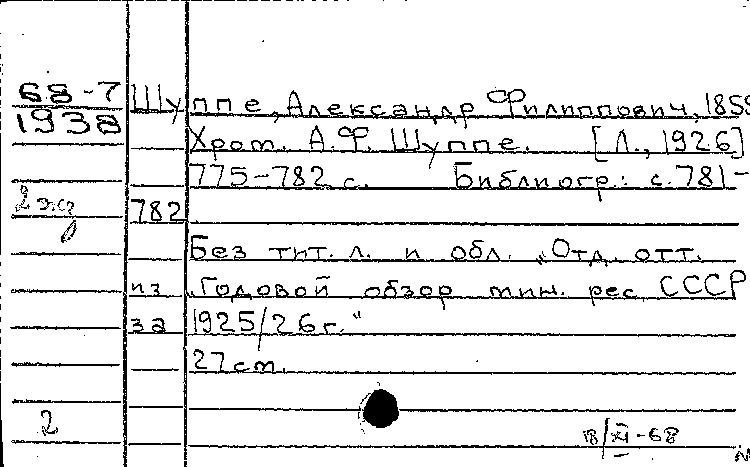 68-7 Шуппе, Александр Филиппович, 1859
1938 Хром. А.Ф. Шуппе. [Л., 1926]
775-782 с. Библиогр.: с. 781-
2 экз 782.
Без тит. л. и обл. „Отд. отт.
из „Годовой обзор мин. рес СССР
за 1925/26 г."
27 см.
2
18/XI-68